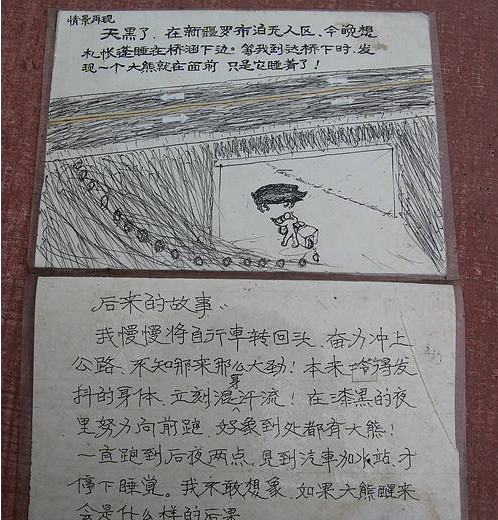 情景再现
天黑了、在新疆罗布泊无人区、今晚想
札帐蓬睡在桥涵下边。等我到达桥下时、发
现一个大熊就在面前 只是它睡着了！
后来的故事..
我慢慢将自行車转回头、奋力冲上
公路、不知哪来那么大劲！本来冷得发
抖的身体、立刻混身汗流！在漆黑的夜
里努力向前跑、好象到处都有大熊！
一直跑到后夜两点、见到汽車加水站、才
停下睡觉。我不敢想象、如果大熊醒来
会是什么样的后果